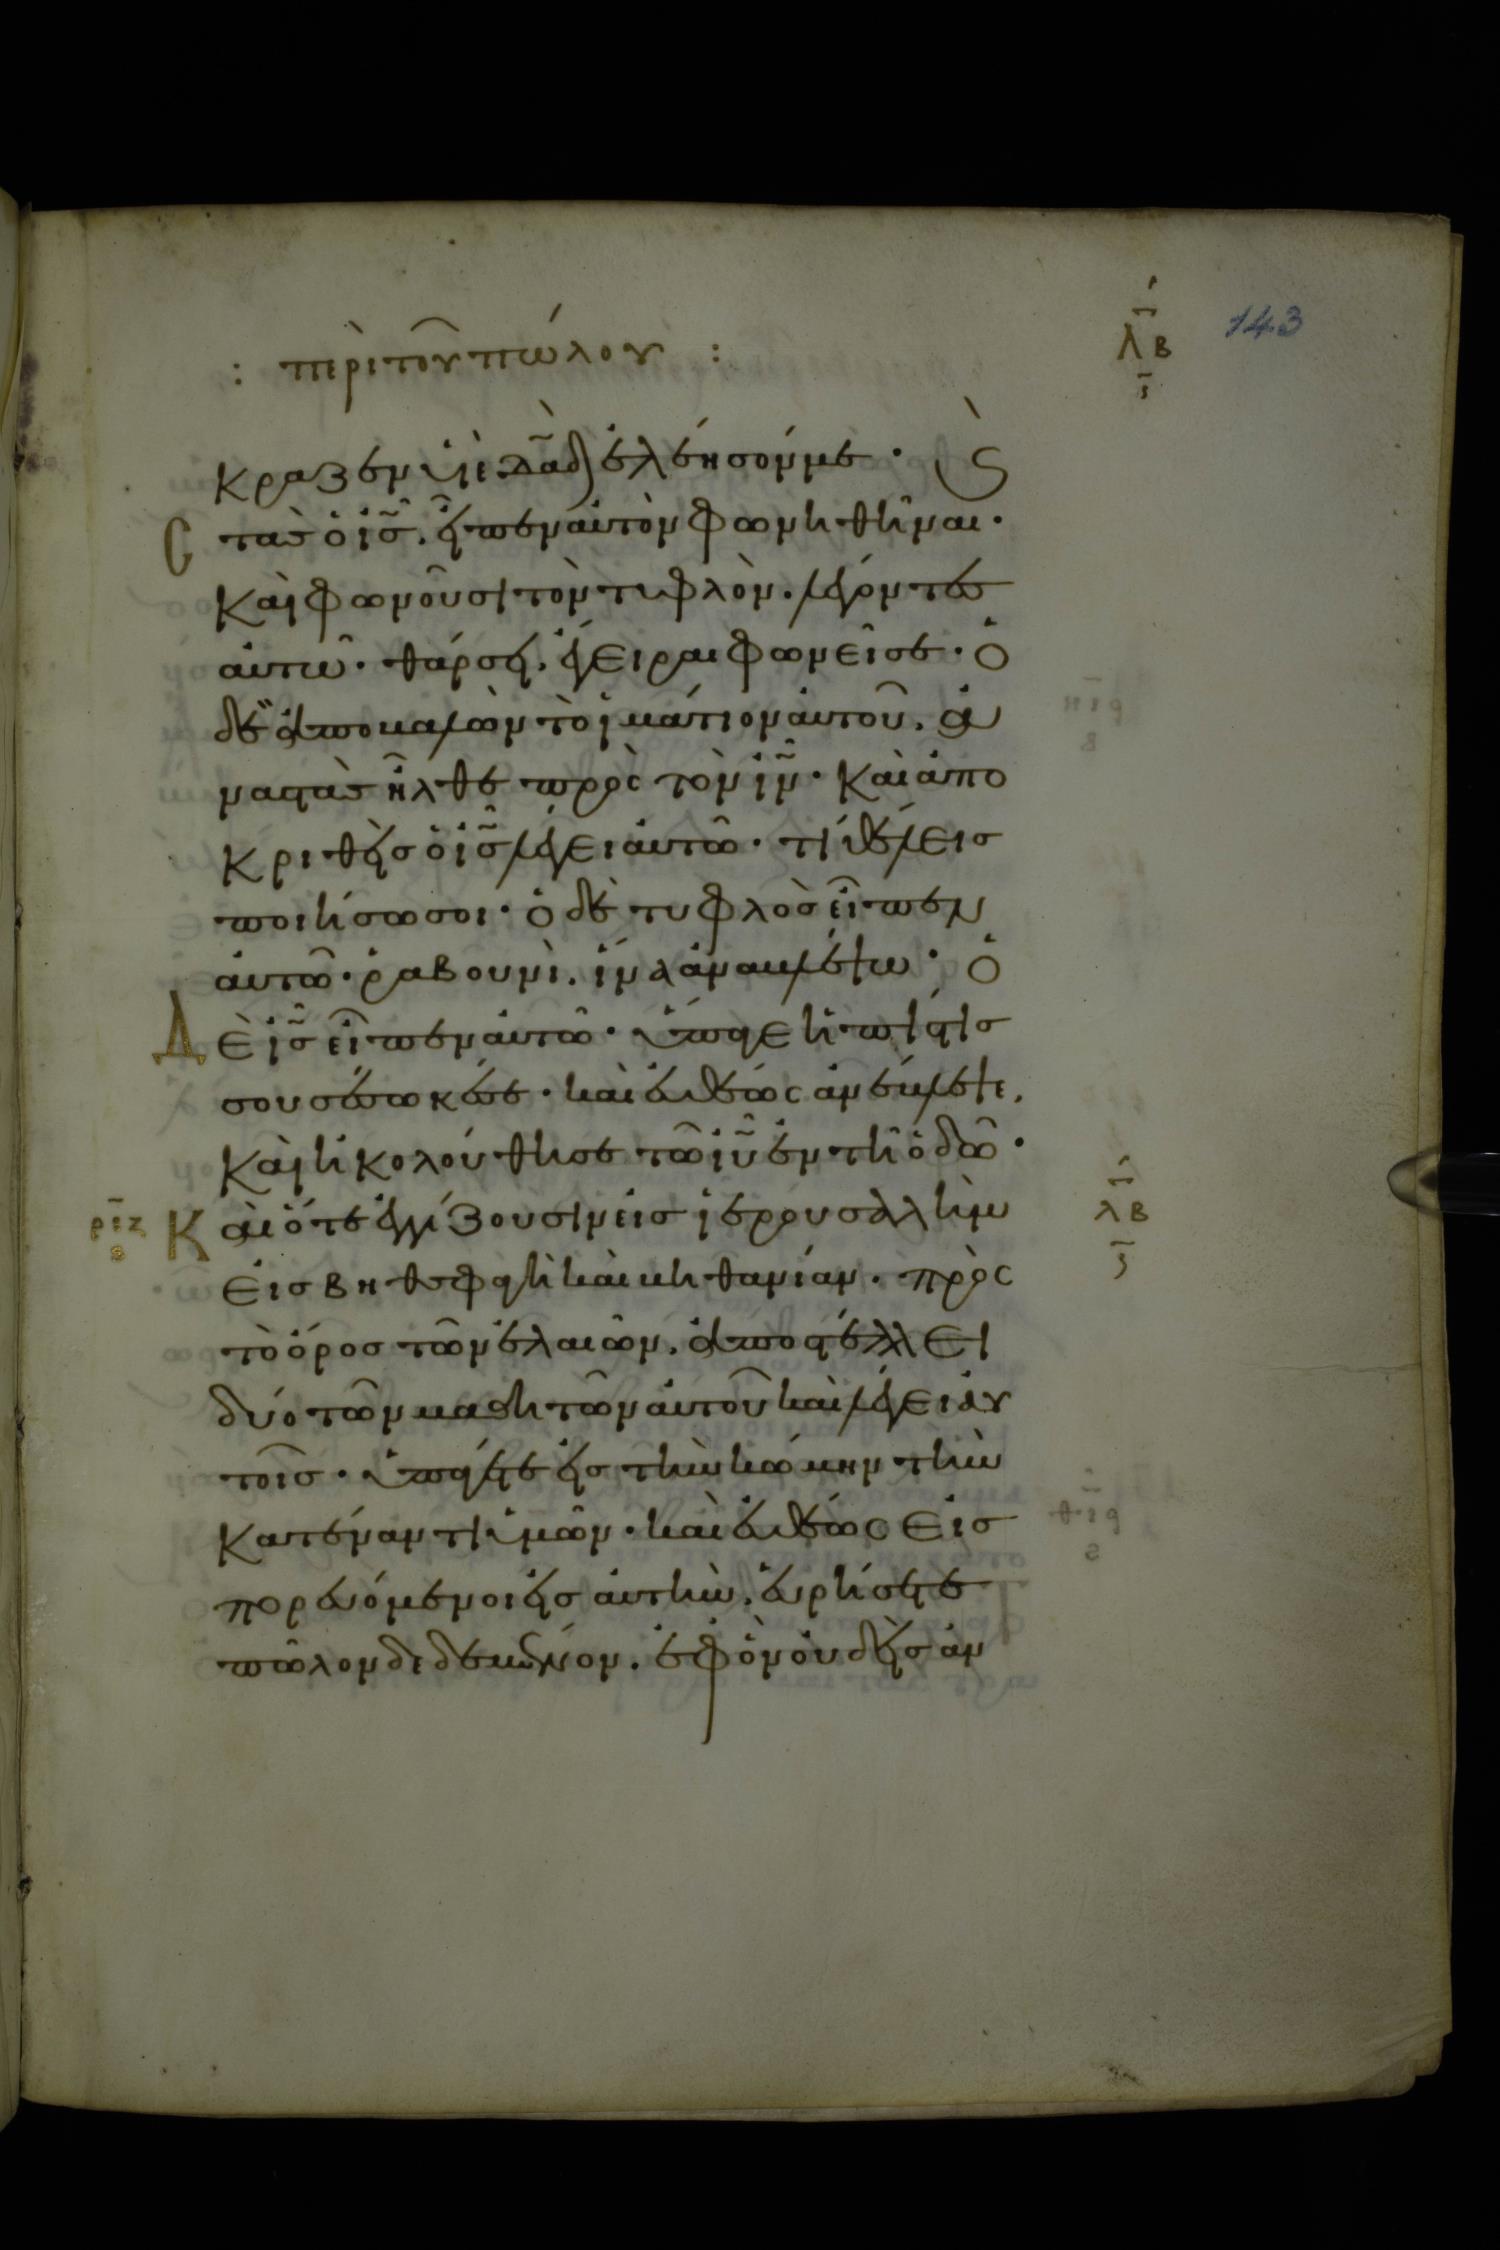 : περὶ τοῦ πώλου :
λβ
143
κραζεν υἱὲ δᾱδ ἐλέησόν με · Καὶ
Στὰς ὁ ις̄. εἶπεν αὐτὸν φωνηθῆναι ·
Καὶ φωνοῦσι τὸν τυφλὸν. λέγοντες
αὐτῶ · θάρσει. ἔγειραι φωνεῖ σε · ὁ
δὲ ἀποβαλὼν τὸ ἱμάτιον αὐτοῦ. ἀ
ναστὰς ἦλθε πρὸς τὸν ιν̄ · Καὶ ἀπο
κριθεὶς ὁ ις̄ λέγει αὐτῶ · τί θέλεις
ποιήσω σοι · ὁ δὲ τυφλὸς εἶπεν
αὐτῶ · ῥαβουνὶ. ἵνα ἀναβλέψω · ὁ
Δὲ ις̄ εἶπεν αὐτῶ · ὕπαγε ἡ πίστις
σου σέσωκέ σε · καὶ εὐθέως ἀνέβλεψε.
Καὶ ἠκολούθησε τῶ ιῡ ἐν τῆ ὁδῶ ·
ριζ Καὶ ὅτε ἐγγίζουσιν εἰς ἱερουσαλὴμ λβ
εἰς βηθσφαγὴ καὶ βηθανίαν. πρὸς
τὸ ὄρος τῶν ἐλαιῶν. ἀποστέλλει
δύο τῶν μαθητῶν αὐτοῦ καὶ λέγει αὐ
τοῖς · ὑπάγετε εἰς τὴν κώμην τὴν
κατέναντι ὑμῶν · καὶ εὐθέως εἰσ
πορευόμενοι εἰς αὐτὴν. εὑρήσετε
πῶλον δεδεμένον. ἐφ ὃν οὐδεὶς ἀν